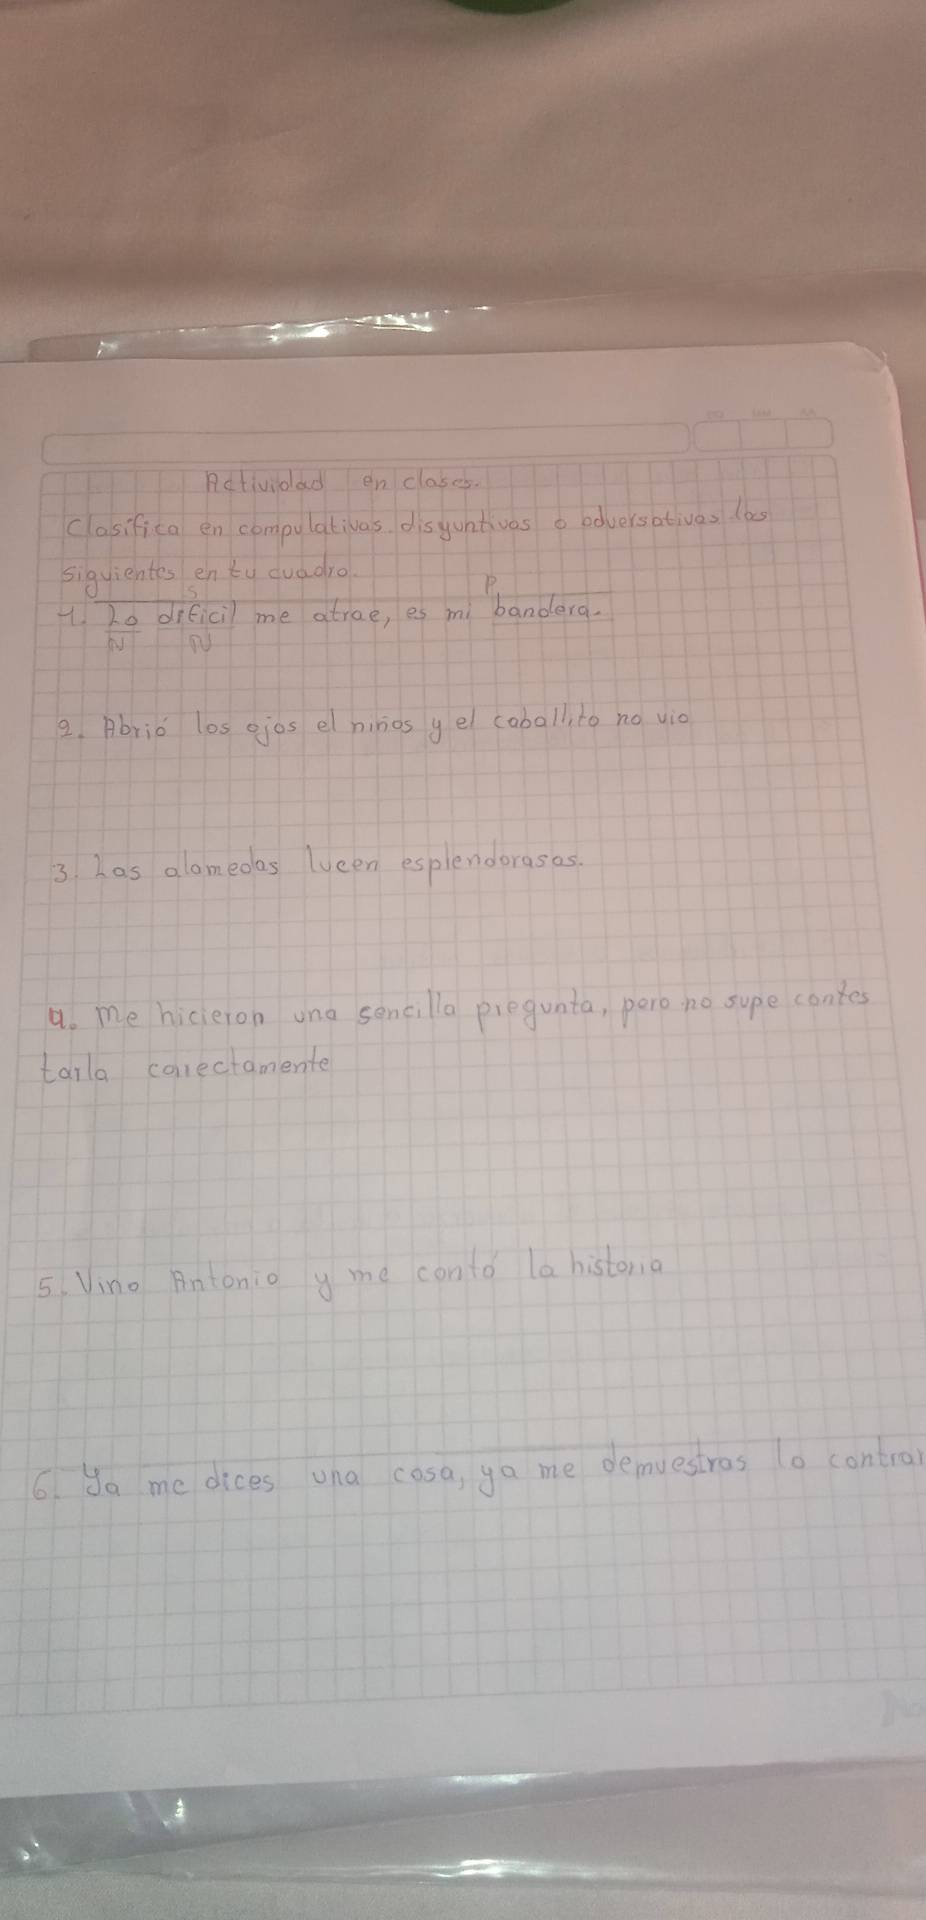 Actividad en clases.
Clasifica en compulativas. disyuntivas o adversativas las
siguientes en tu cuadro.
S P
1. Lo dificil me atrae, es mi bandera.
N N
2. Abrió los ojos el niños y el caballito no vio
3. Las alamedas lucen esplendorasas.
4. me hicieron una sencilla pregunta, pero no supe contes
tarla correctamente
5. Vino Antonio y me contó la historia
6. Ya me dices una cosa, ya me demuestras lo contrar